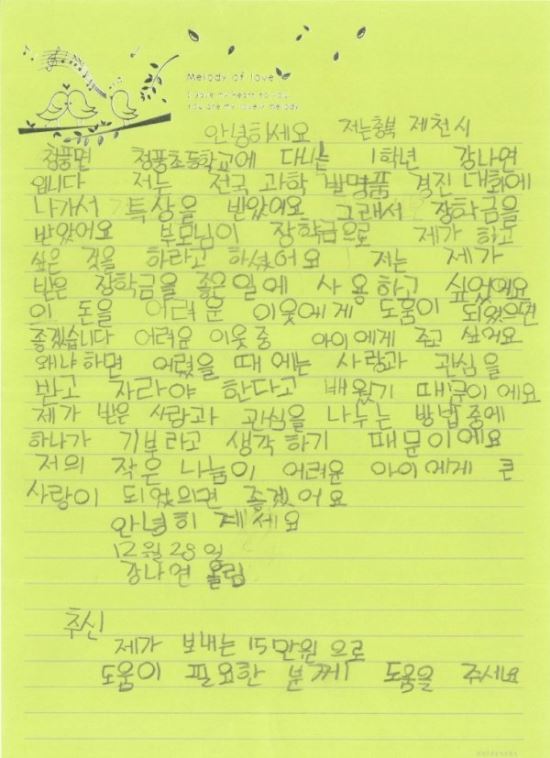 Melody of love
I gave my heart to you
You are my lovely melody
안녕하세요 저는충북 제천시
청풍면 청풍초등학교에 다니는 1학년 강나연
입니다 저는 전국 과학 발명품 경진 대회에
나가서 특상을 받았어요 그래서 장학금을
받았어요 부모님이 장학금으로 제가 하고
싶은 것을 하라고 하셨어요 저는 제가
받은 장학금을 좋은일에 사용하고 싶었어요
이 돈을 어려운 이웃에게 도움이 되었으면
좋겠습니다 어려운 이웃중 아이에게 주고 싶어요
왜냐하면 어렸을 때에는 사랑과 관심을
받고 자라야 한다고 배웠기 때문이에요
제가 받은 사랑과 관심을 나누는 방법중에
하나가 기부라고 생각하기 때문이에요
저의 작은 나눔이 어려운 아이에게 큰
사랑이 되었으면 좋겠어요
안녕히 계세요
12월 28일
강나연 올림
추신
제가 보내는 15만원으로
도움이 필요한 분께 도움을 주세요